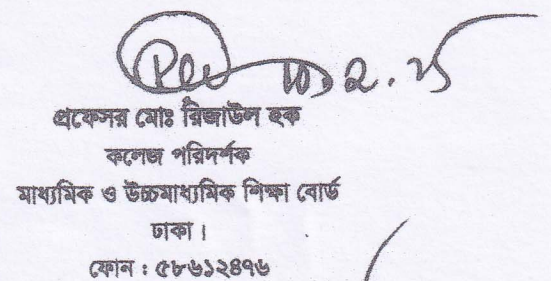 প্রফেসর মোঃ রিজাউল হক
কলেজ পরিদর্শক
মাধ্যমিক ও উচ্চমাধ্যমিক শিক্ষা বোর্ড
ঢাকা।
ফোন : ৫৮৬১২৪৭৬